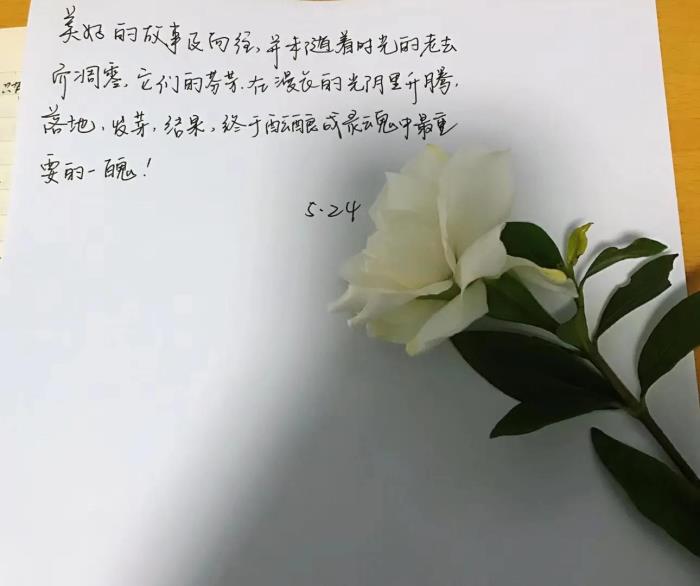 美好的故事及向往，并未随着时光的老去
而凋零，它们的芬芳.在漫长的光阴里升腾，
落地，发芽，结果，终于酝酿成灵魂中最重
要的一魄！
5.24